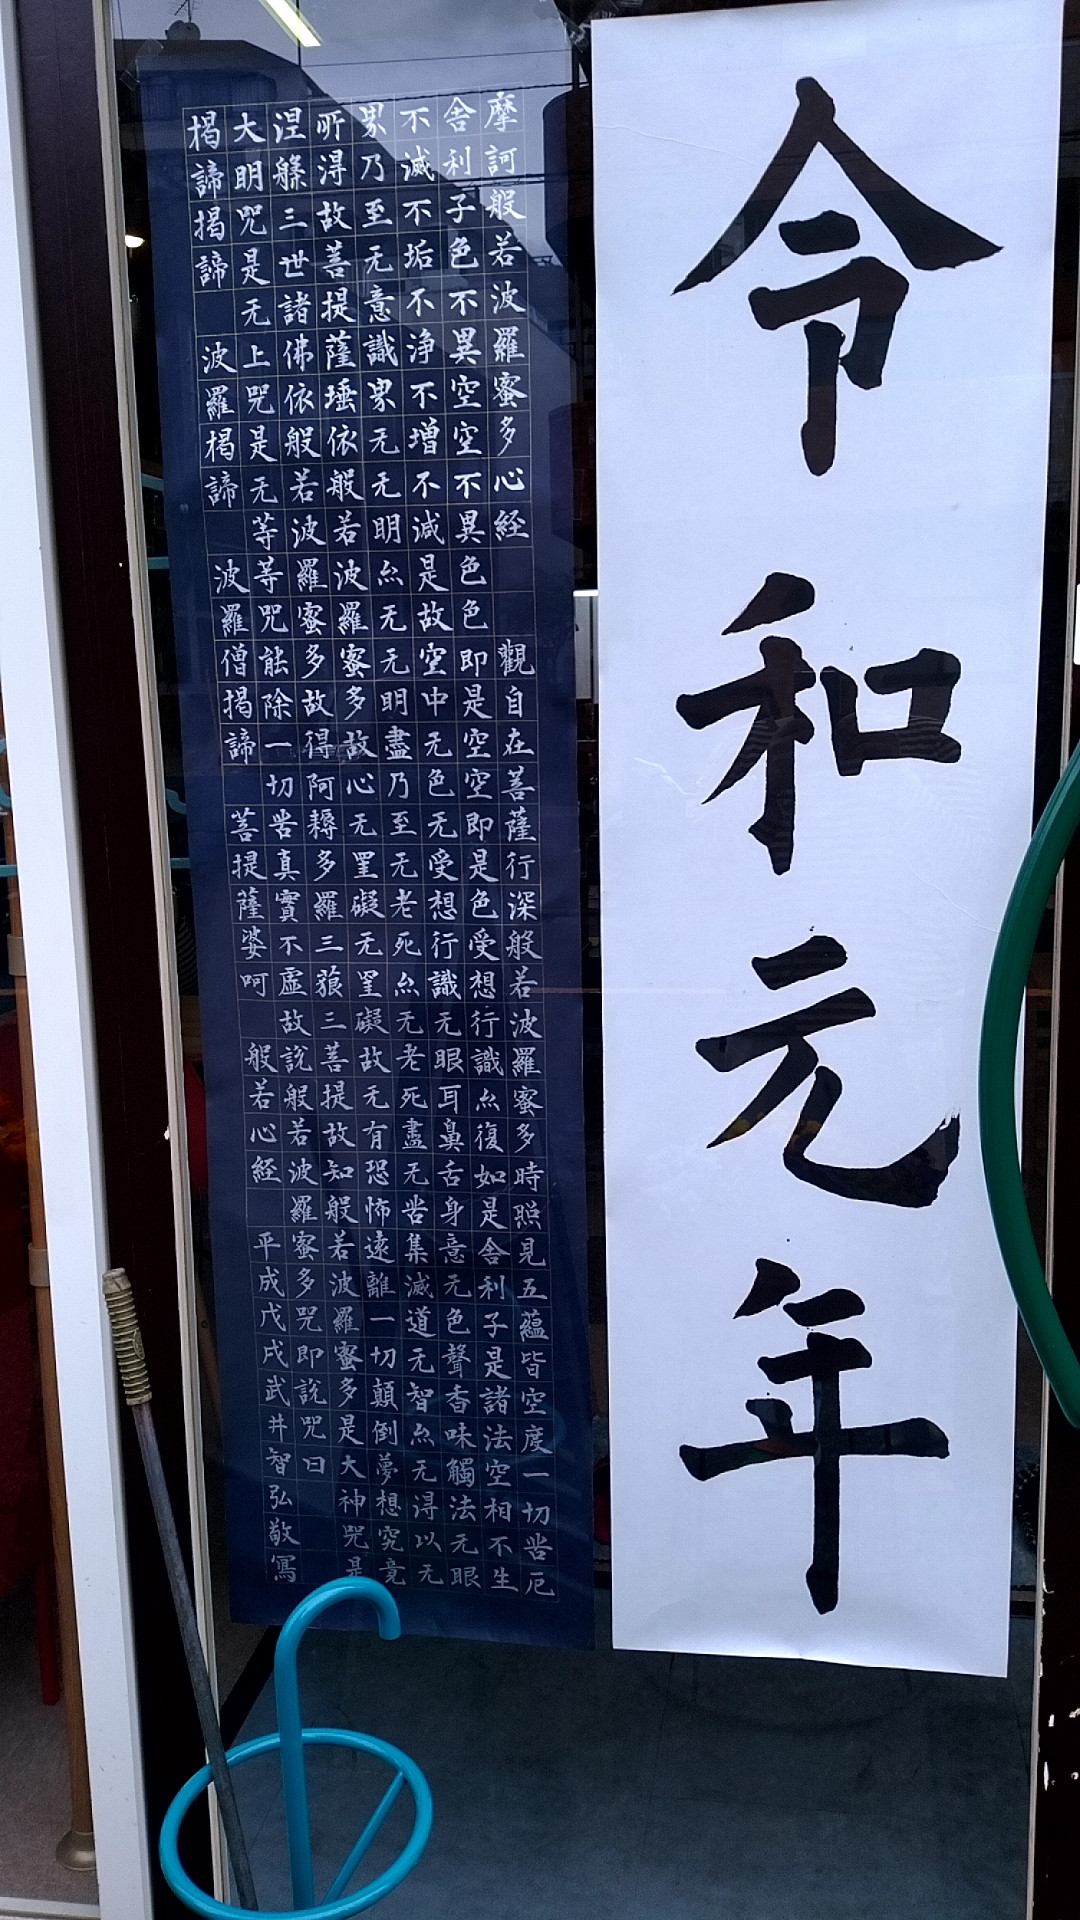 令和元年
摩訶般若波羅蜜多心経 觀自在菩薩行深般若波羅蜜多時照見五蘊皆空度一切苦厄
舎利子色不異空空不異色色即是空空即是色受想行識亦復如是舎利子是諸法空相不生
不滅不垢不浄不増不減是故空中无色无受想行識无眼耳鼻舌身意无色聲香味觸法无眼
界乃至无意識界无无明亦无无明盡乃至无老死亦无老死盡无苦集滅道无智亦无得以无
所得故菩提薩埵依般若波羅蜜多故心无罣礙无罣礙故无有恐怖遠離一切顛倒夢想究竟
涅槃三世諸佛依般若波羅蜜多故得阿耨多羅三藐三菩提故知般若波羅蜜多是大神咒是
大明咒是无上咒是无等等咒能除一切苦真實不虚故説般若波羅蜜多咒即説咒曰
揭諦揭諦 波羅揭諦 波羅僧揭諦 菩提薩婆呵 般若心経 平成戊戌武井智弘敬寫